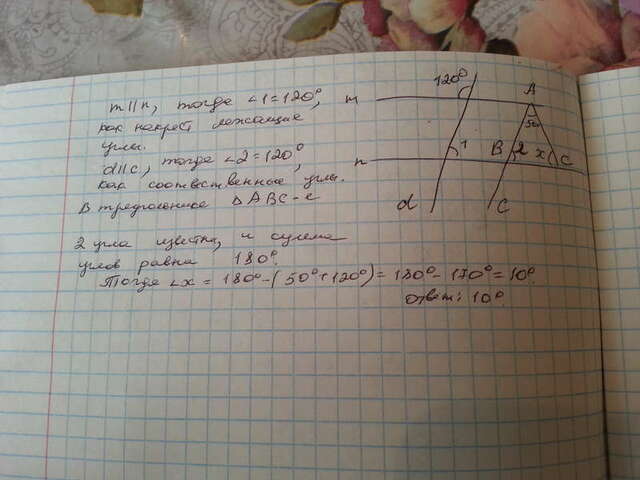 m || n, тогда ∠1=120°,
как накрест лежащие
углы.
d || c, тогда ∠2=120°,
как соотвественные углы.
В треугольнике △ABC -
2 угла известны, и сумма
углов равна 180°.
Тогда ∠x = 180°-(50°+120°)=180°-170°=10°.
ответ: 10°.
120°
m
A
50
n
1
B
2
x
C
d
C